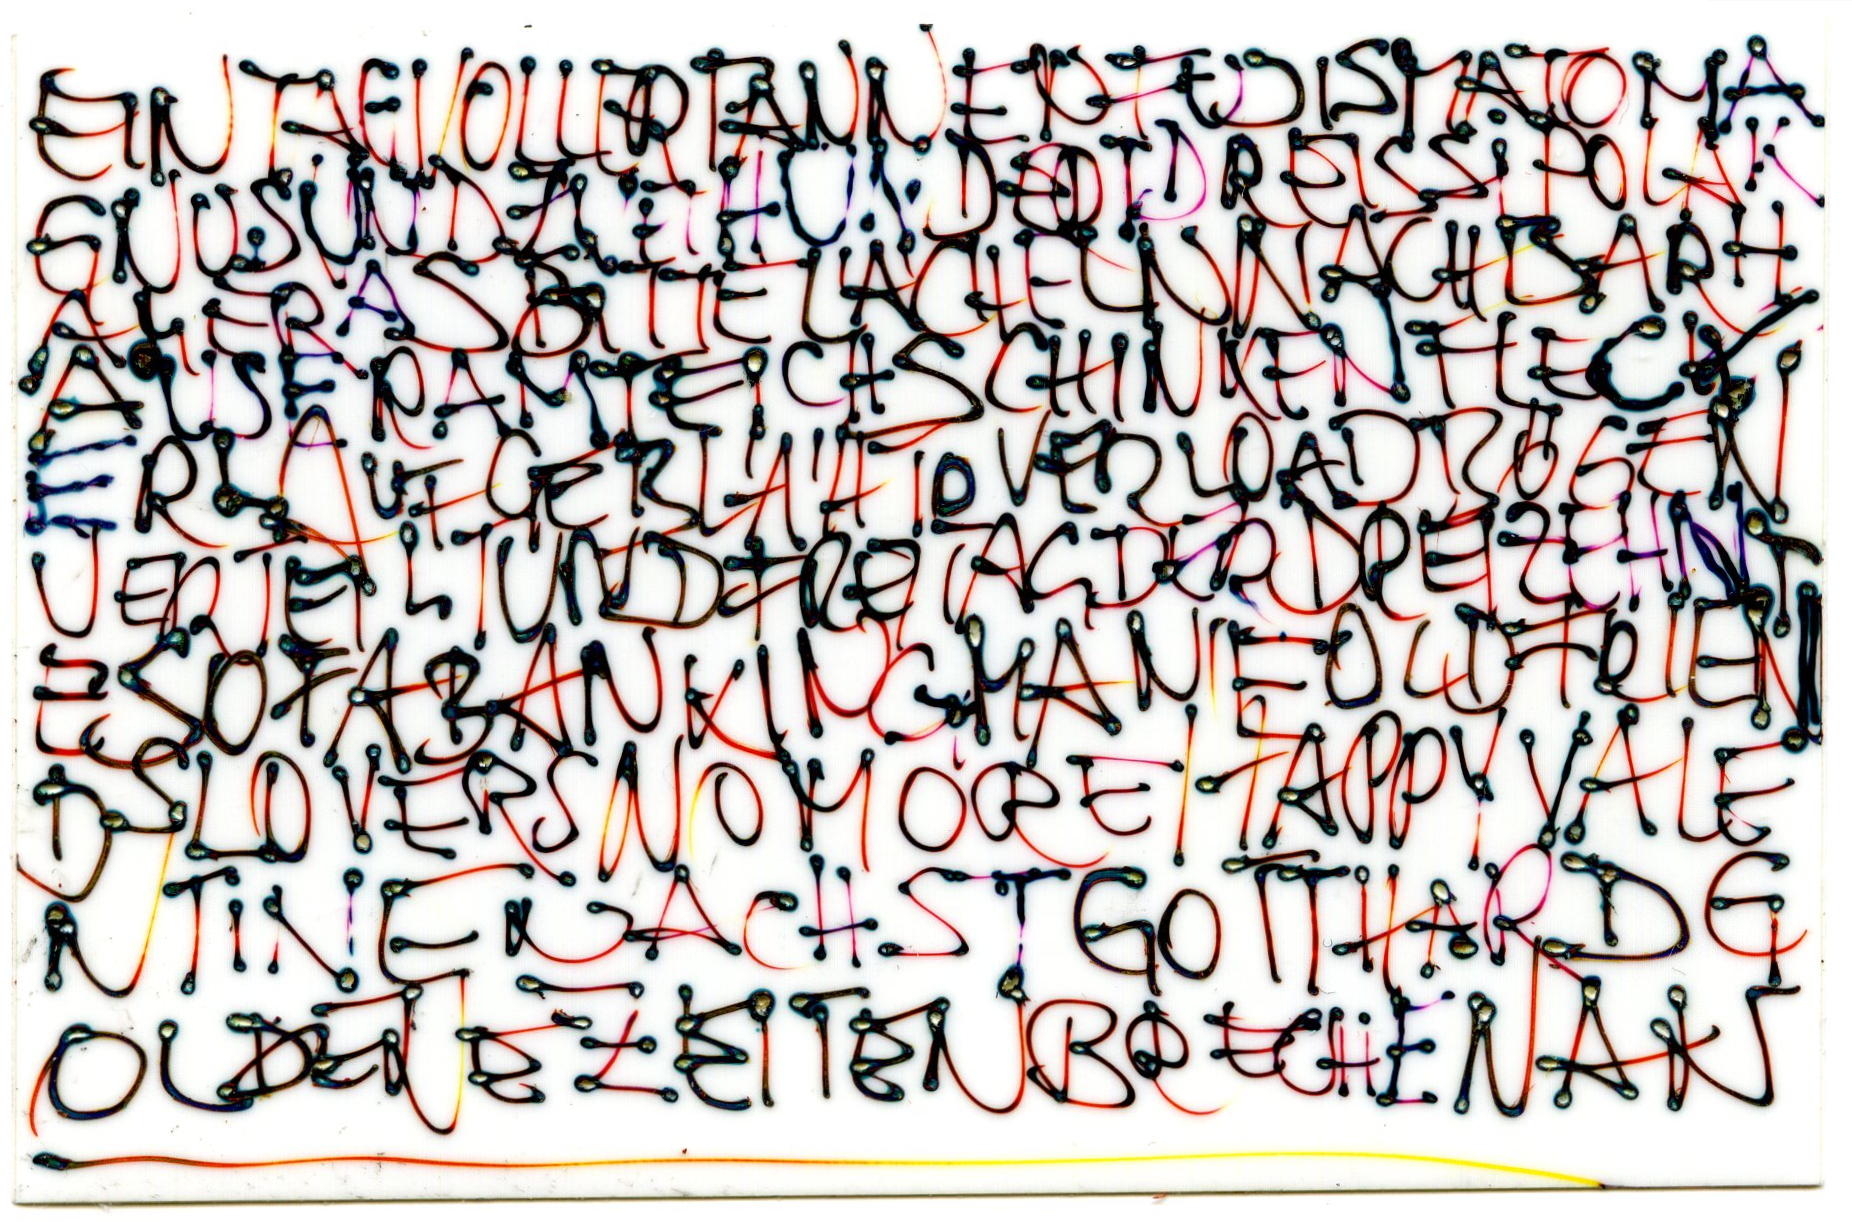 EIN TAG VOLLER TANNER FEDIS MATOMA
GNUS UND ZEHUNDERTDREISSI POLAR
ALLER AS BITTE LÄCHELN NACHBAR H
ÄUSER AM TEICH SCHINKENFLECK
ER L AUFGEBLÄHT OVERLOAD BÖGEN
VERTEILT UND FREITAG DER DREIZEHNT
E SOFABANKING MANIEOLU FRIEN
DS LOVERS NO MORE HAPPY VALE
NTINE NÄCHST GOTTHARD G
OLDENE ZEITEN BRECHEN AN